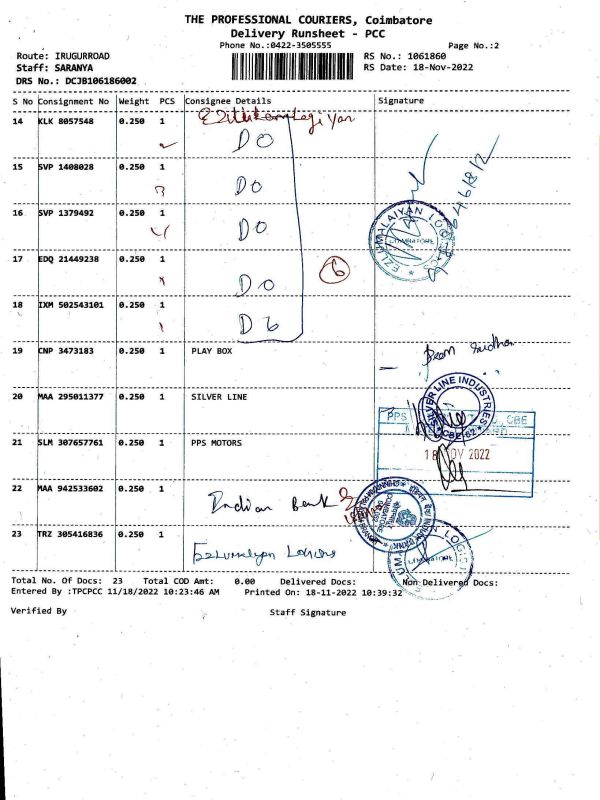 THE PROFESSIONAL COURIERS, Coimbatore
Delivery Runsheet - PCC
Phone No.:0422-3505555 Page No.:2
Route: IRUGURROAD RS No.: 1061860
Staff: SARANYA RS Date: 18-Nov-2022
DRS No.: DCJB106186002
S No Consignment No Weight PCS Consignee Details Signature
14 KLK 8057548 0.250 1
DO
15 SVP 1408028 0.250 1
DO
16 SVP 1379492 0.250 1
DO
EZHUMALAIYAN LOGISTICS
COIMBATORE
17 EDQ 21449238 0.250 1
6
DO
18 IXM 502543101 0.250 1
DO
19 CNP 3473183 0.250 1 PLAY BOX
20 MAA 295011377 0.250 1 SILVER LINE
SILVER LINE INDUSTRIES
CBE-62
PPS CBE
21 SLM 307657761 0.250 1 PPS MOTORS
18 NOV 2022
22 MAA 942533602 0.250 1
Indian Bank
INDIAN BANK
23 TRZ 305416836 0.250 1
COIMBATORE
Total No. Of Docs: 23 Total COD Amt: 0.00 Delivered Docs: Non Delivered Docs:
Entered By :TPCPCC 11/18/2022 10:23:46 AM Printed On: 18-11-2022 10:39:32
Verified By Staff Signature